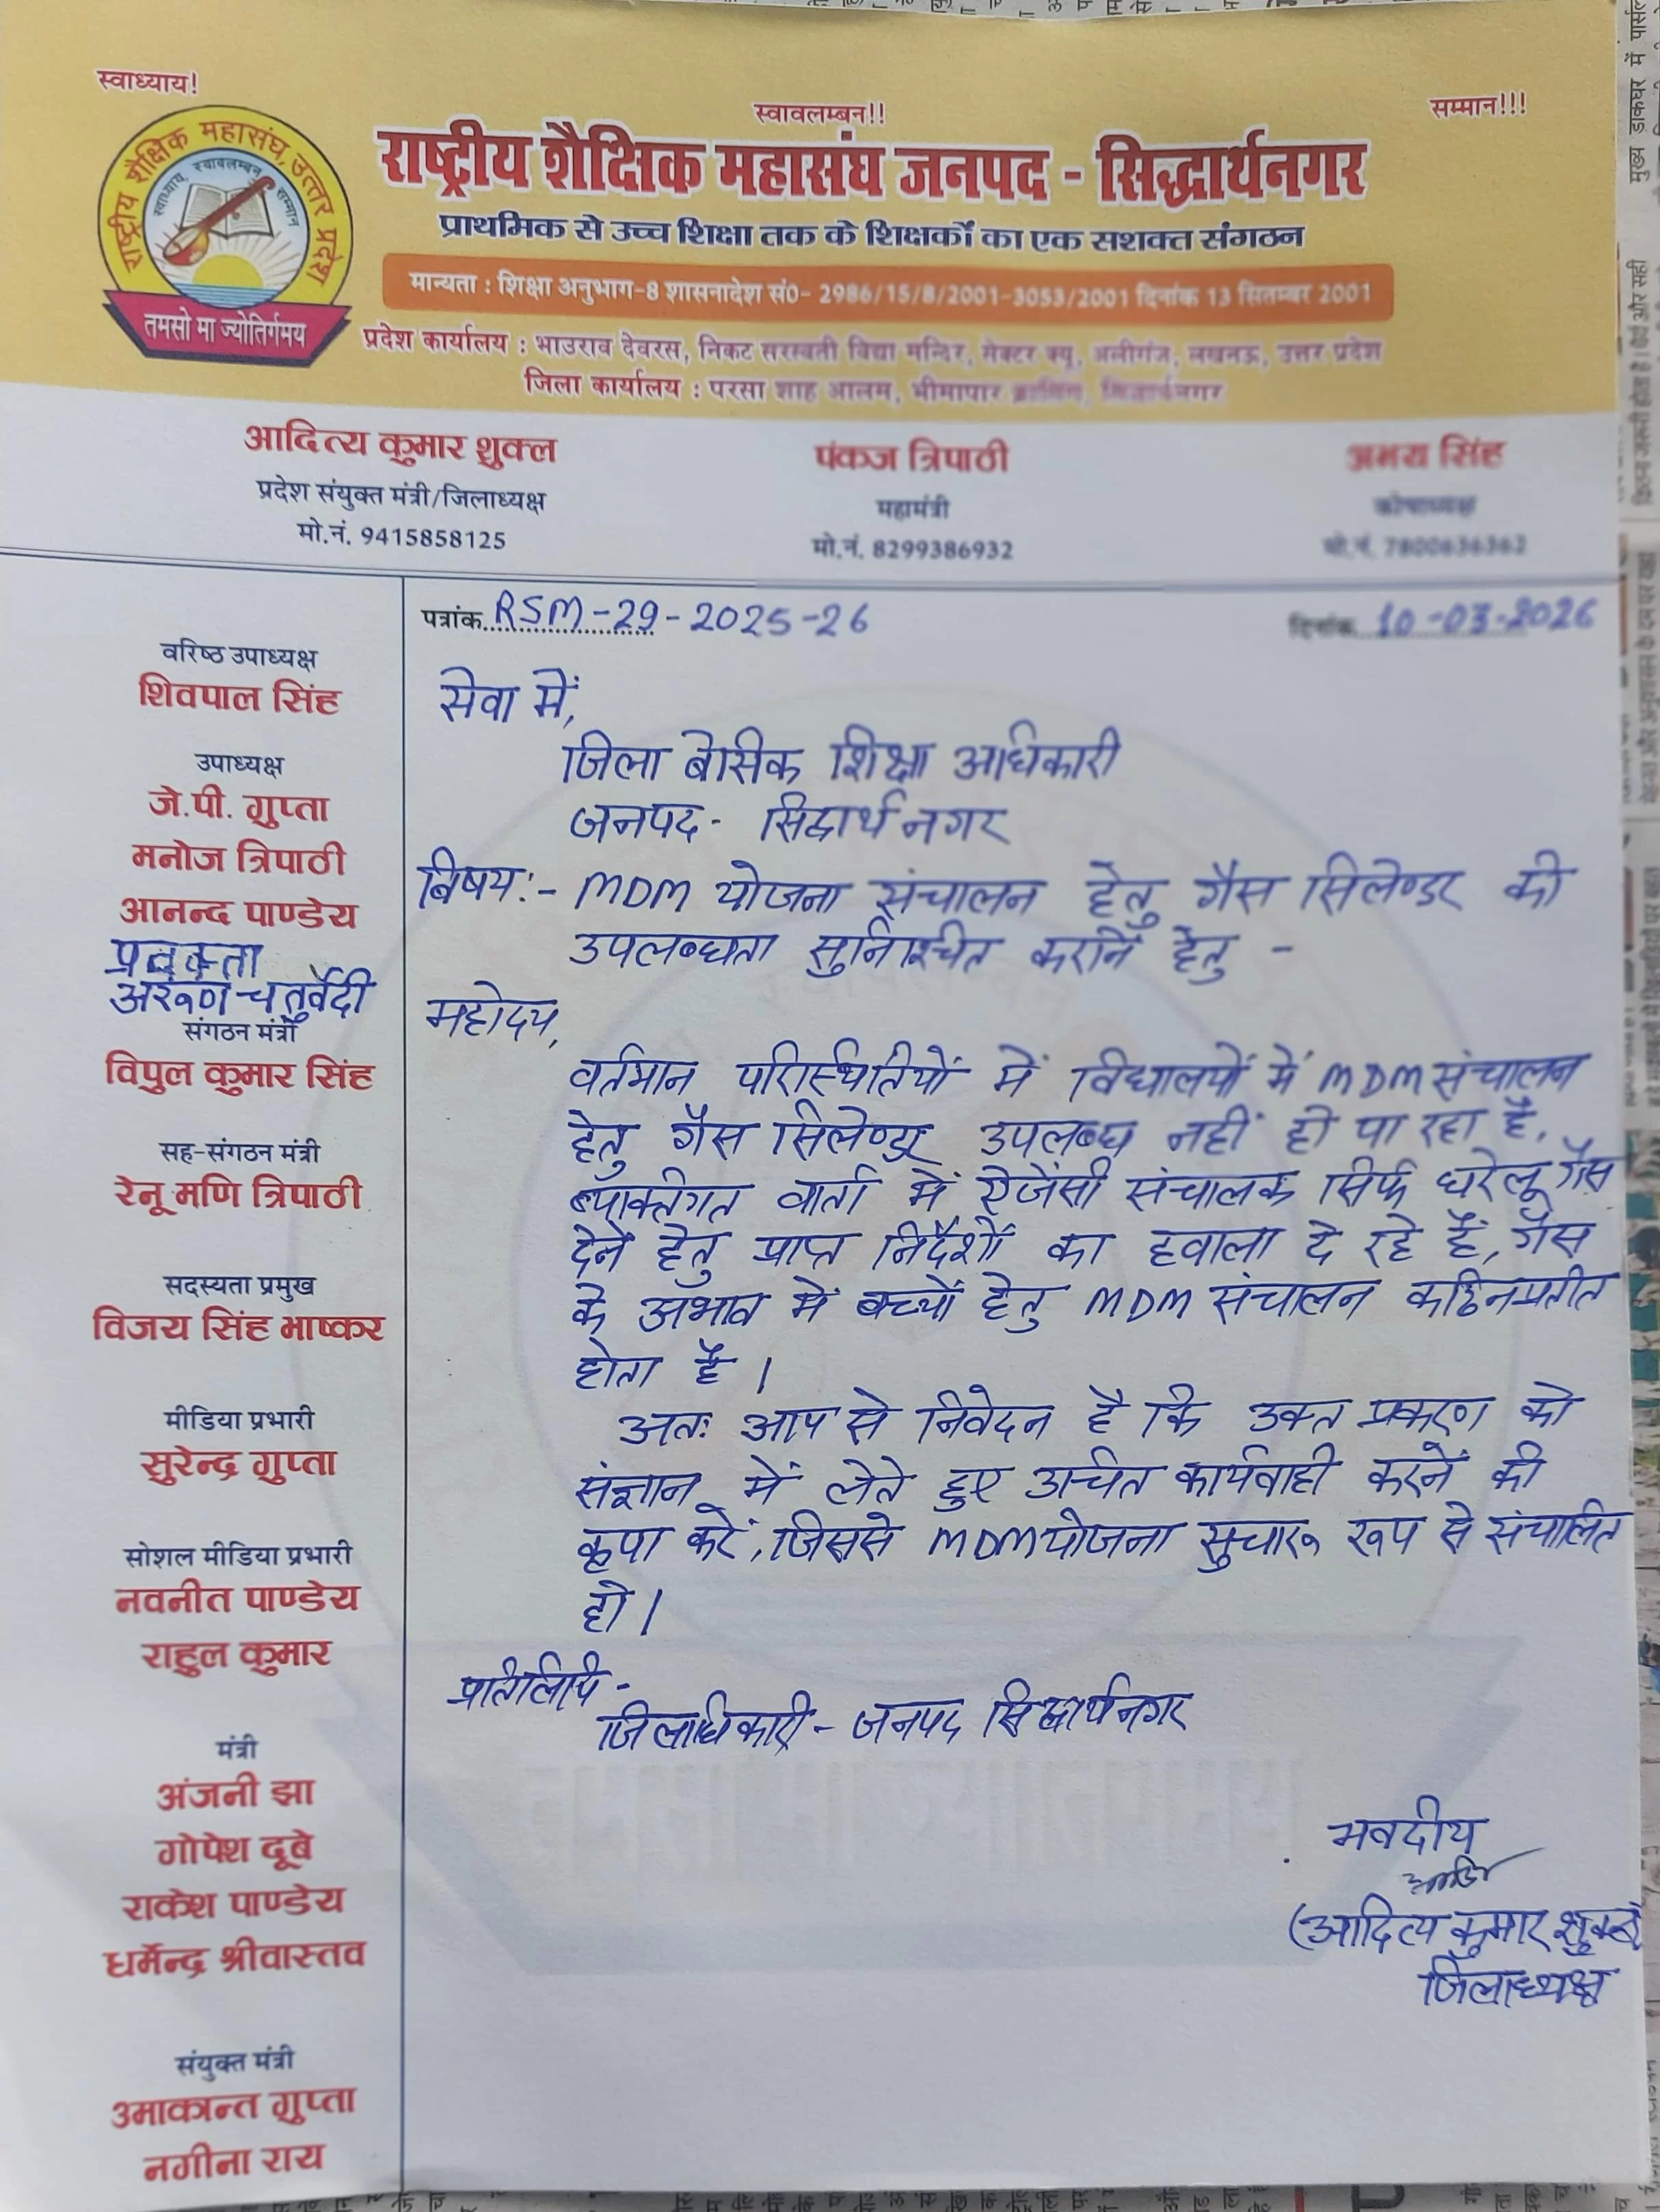 स्वाध्याय!
स्वावलम्बन!!
सम्मान!!!
राष्ट्रीय शैक्षिक महासंघ, उत्तर प्रदेश
स्वाध्याय, स्वावलम्बन, सम्मान
तमसो मा ज्योतिर्गमय
राष्ट्रीय शैक्षिक महासंघ जनपद - सिद्धार्थनगर
प्राथमिक से उच्च शिक्षा तक के शिक्षकों का एक सशक्त संगठन
मान्यता : शिक्षा अनुभाग-8 शासनादेश सं0- 2986/15/8/2001-3053/2001 दिनांक 13 सितम्बर 2001
प्रदेश कार्यालय : भाउराव देवरस, निकट सरस्वती विद्या मन्दिर, सेक्टर क्यू, अलीगंज, लखनऊ, उत्तर प्रदेश
जिला कार्यालय : परसा शाह आलम, भीमापार सिद्धार्थनगर
आदित्य कुमार शुक्ल
प्रदेश संयुक्त मंत्री/जिलाध्यक्ष
मो.नं. 9415858125
पंकज त्रिपाठी
महामंत्री
मो.नं. 8299386932
अभय सिंह
कोषाध्यक्ष
मो.नं. 7800636362
वरिष्ठ उपाध्यक्ष
शिवपाल सिंह
उपाध्यक्ष
जे.पी. गुप्ता
मनोज त्रिपाठी
आनन्द पाण्डेय
प्रवक्ता
अरूण चतुर्वेदी
संगठन मंत्री
विपुल कुमार सिंह
सह-संगठन मंत्री
रेनू मणि त्रिपाठी
सदस्यता प्रमुख
विजय सिंह भाष्कर
मीडिया प्रभारी
सुरेन्द्र गुप्ता
सोशल मीडिया प्रभारी
नवनीत पाण्डेय
राहुल कुमार
मंत्री
अंजनी झा
गोपेश दूबे
राकेश पाण्डेय
धर्मेन्द्र श्रीवास्तव
संयुक्त मंत्री
उमाकान्त गुप्ता
नगीना राय
पत्रांक RSM-29-2025-26
दिनांक 10-03-2026
सेवा में,
जिला बेसिक शिक्षा अधिकारी
जनपद- सिद्धार्थनगर
विषय:- MDM योजना संचालन हेतु गैस सिलेण्डर की
उपलब्धता सुनिश्चित कराने हेतु -
महोदय,
वर्तमान परिस्थितियों में विद्यालयों में MDM संचालन
हेतु गैस सिलेण्डर उपलब्ध नहीं हो पा रहा है,
व्यक्तिगत वार्ता में ऐजेंसी संचालक सिर्फ घरेलू गैस
देने हेतु प्राप्त निर्देशों का हवाला दे रहे हैं, गैस
के अभाव में बच्चों हेतु MDM संचालन कठिन प्रतीत
होता है।
अतः आप से निवेदन है कि उक्त प्रकरण को
संज्ञान में लेते हुए उचित कार्यवाही करने की
कृपा करें, जिससे MDM योजना सुचारू रूप से संचालित
हो।
प्रतिलिपि -
जिलाधिकारी - जनपद सिद्धार्थनगर
भवदीय
(आदित्य कुमार शुक्ल)
जिलाध्यक्ष